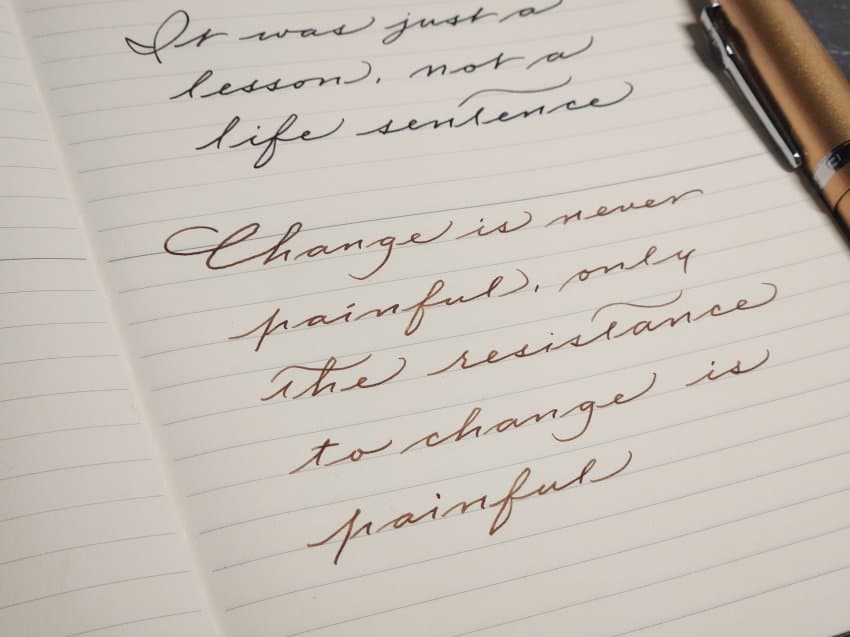 It was just a
lesson, not a
life sentence
Change is never
painful, only
the resistance
to change is
painful